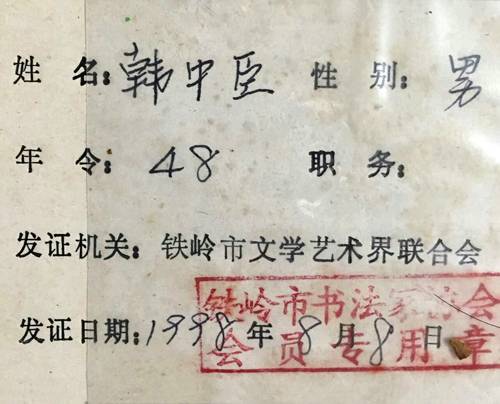 姓 名：韩中臣 性 别：男
年 令：48 职 务：
发证机关：铁岭市文学艺术界联合会
铁岭市书法家协会
发证日期：1998年8月8日
会员专用章